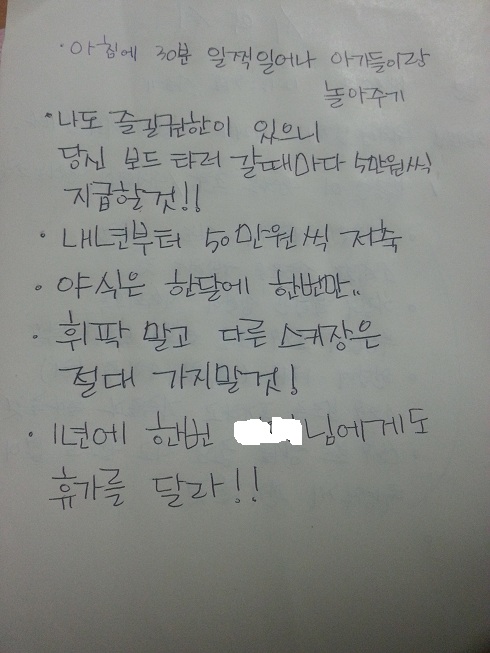 · 아침에 30분 일찍일어나 아가들이랑
놀아주기
· 나도 즐길권한이 있으니
당신 보드 타러 갈때마다 5만원씩
지급할것!!
· 내년부터 50만원씩 저축
· 야식은 한달에 한번만..
· 휘팍 말고 다른 스키장은
절대 가지말것!
· 1년에 한번 님에게도
휴가를 달라!!